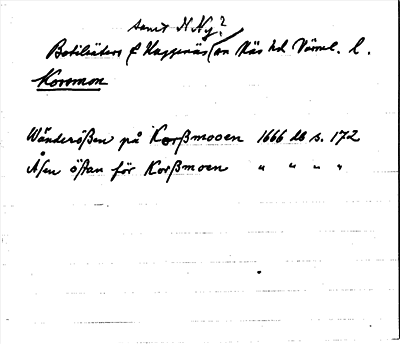 samt N Ny?
Botilsäters f Huggenäs sn Näs hd Värml. l.
Korsmon
Wänderößen på Korßmooen 1666 lb s. 172
Åsen östan för Korßmoen " " " "